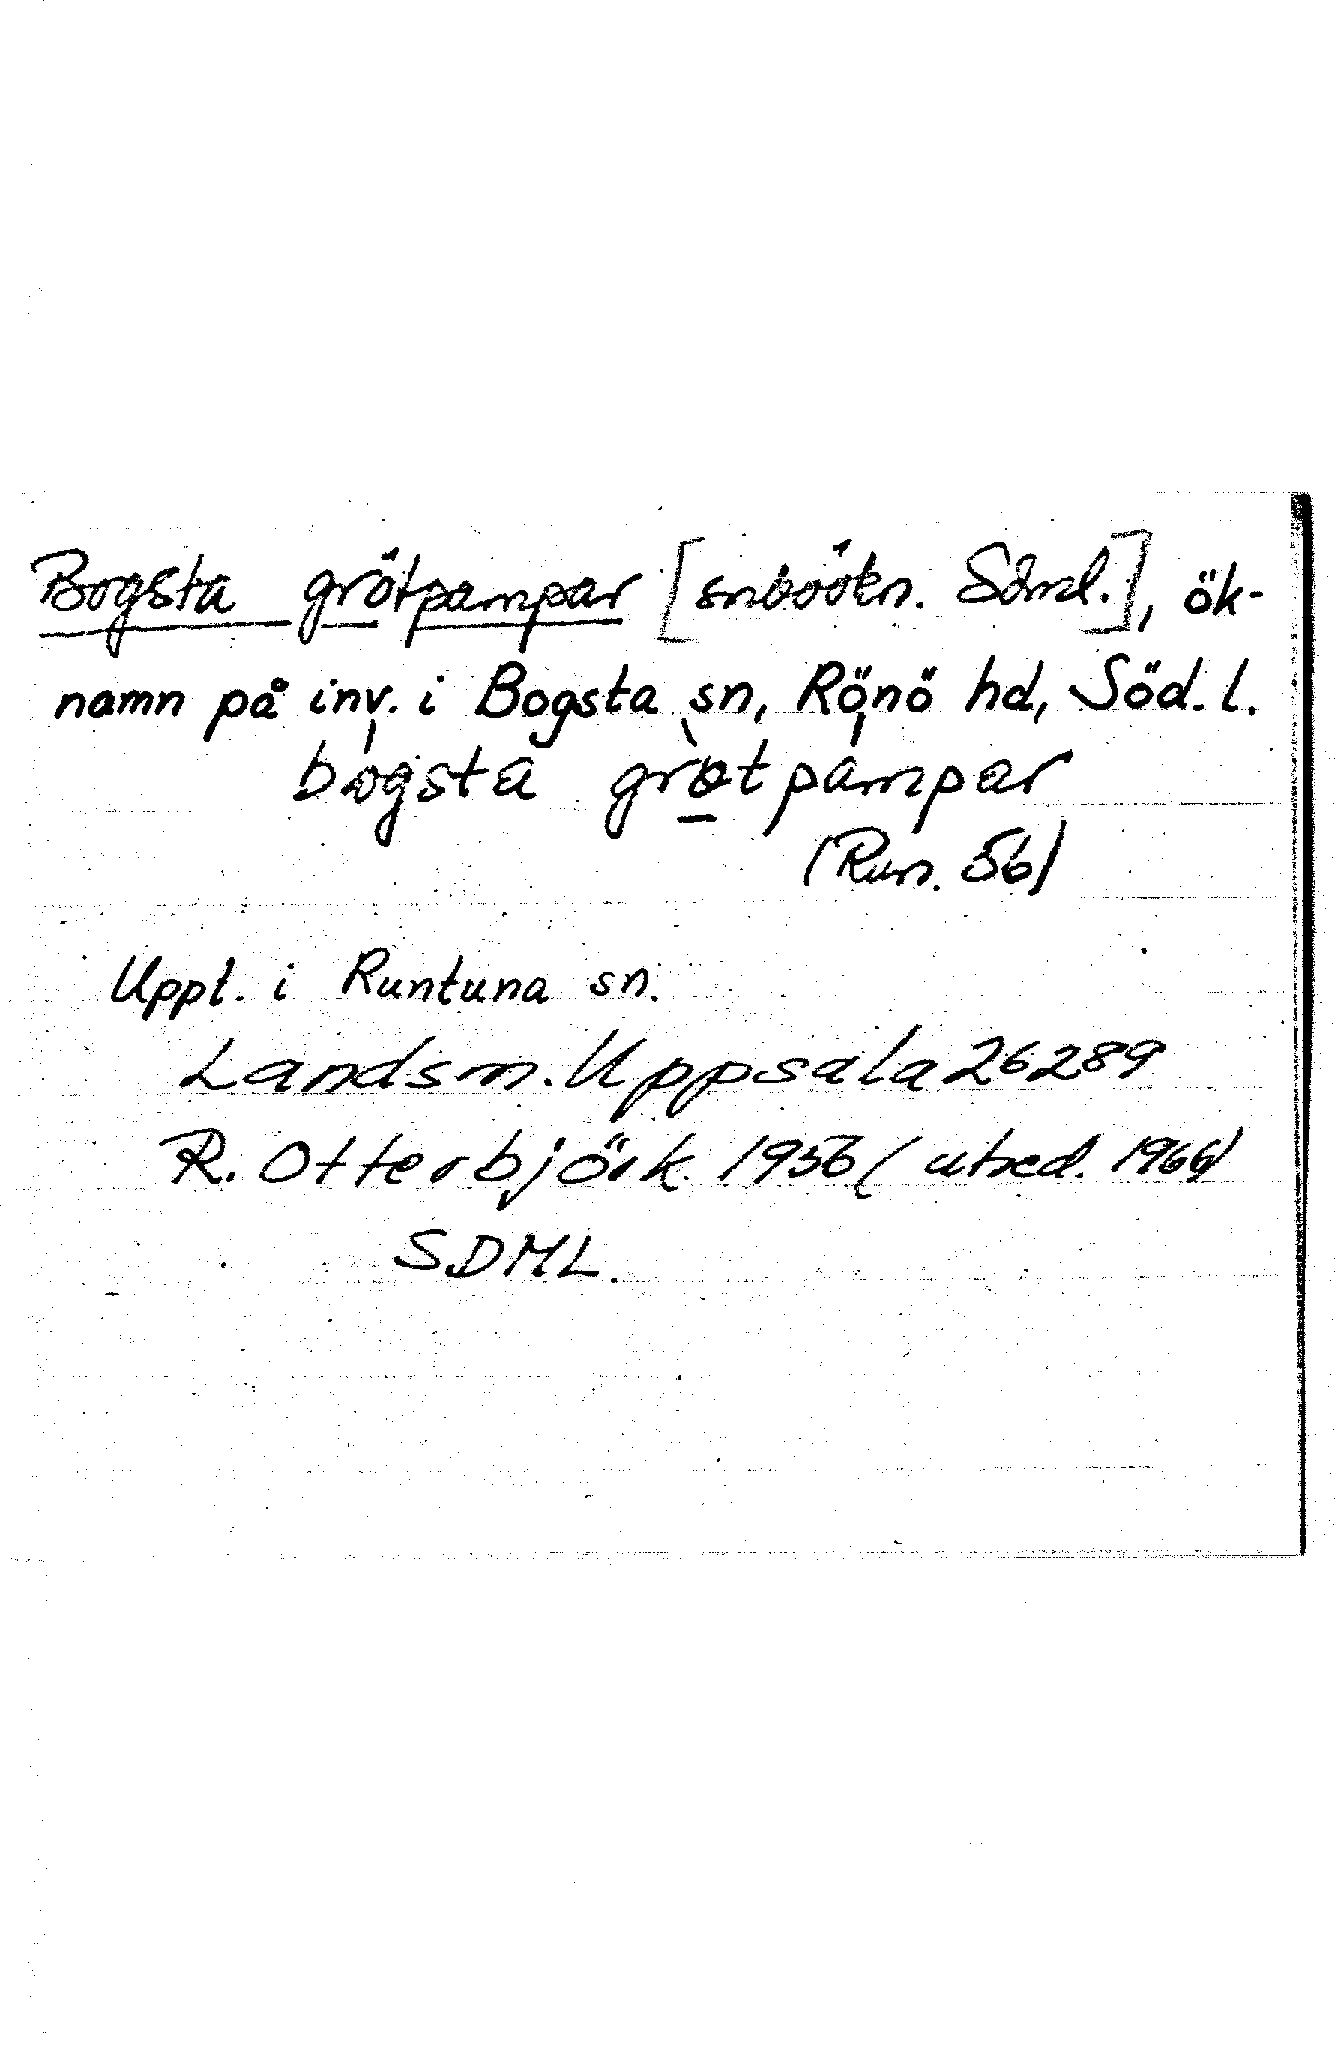 Bogsta grötpampar [snboökn. Sdml.], ök-
namn på inv. i Bogsta sn, Rönö hd, Söd. l.
bogsta grötpampar
(Run. 56)
Uppt. i Runtuna sn.
Landsm. Uppsala 26289
R. Otterbjörk 1956 (utred. 1966)
SDML.